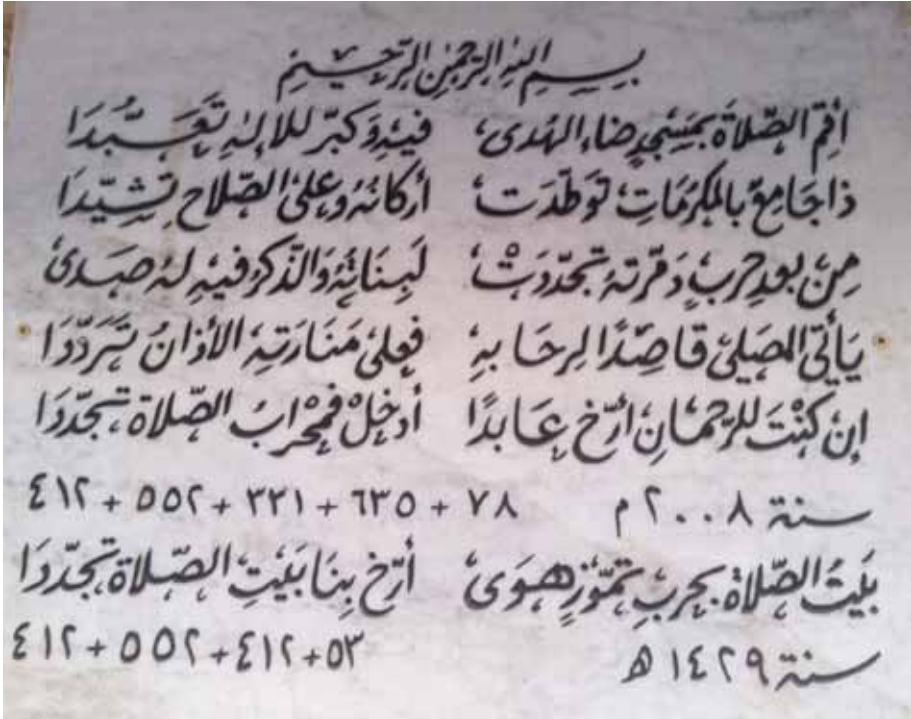 بسم الله الرحمن الرحيم
اقم الصلاة بمسجد ضاء الهدى فيه وكبر للاله تعبدا
ذا جامع بالمكرمات توطدت أركانه وعلى الصلاح تشيدا
من بعد حرب دمرته تجددت لبنائه والذكر فيه له صدى
يأتي المصلي قاصدا لرحابه فعلى منارته الأذان ترددا
إن كنت للرحمان أرخ عابدا أدخل فمحراب الصلاة تجددا
سنة ٢٠٠٨ م ٧٨ + ٦٣٥ + ٣٣١ + ٥٥٢ + ٤١٢
بيت الصلاة بحرب تموز هوى أرخ بنا بيت الصلاة تجددا
سنة ١٤٢٩ ه ٥٣+٤١٢+٥٥٢+٤١٢